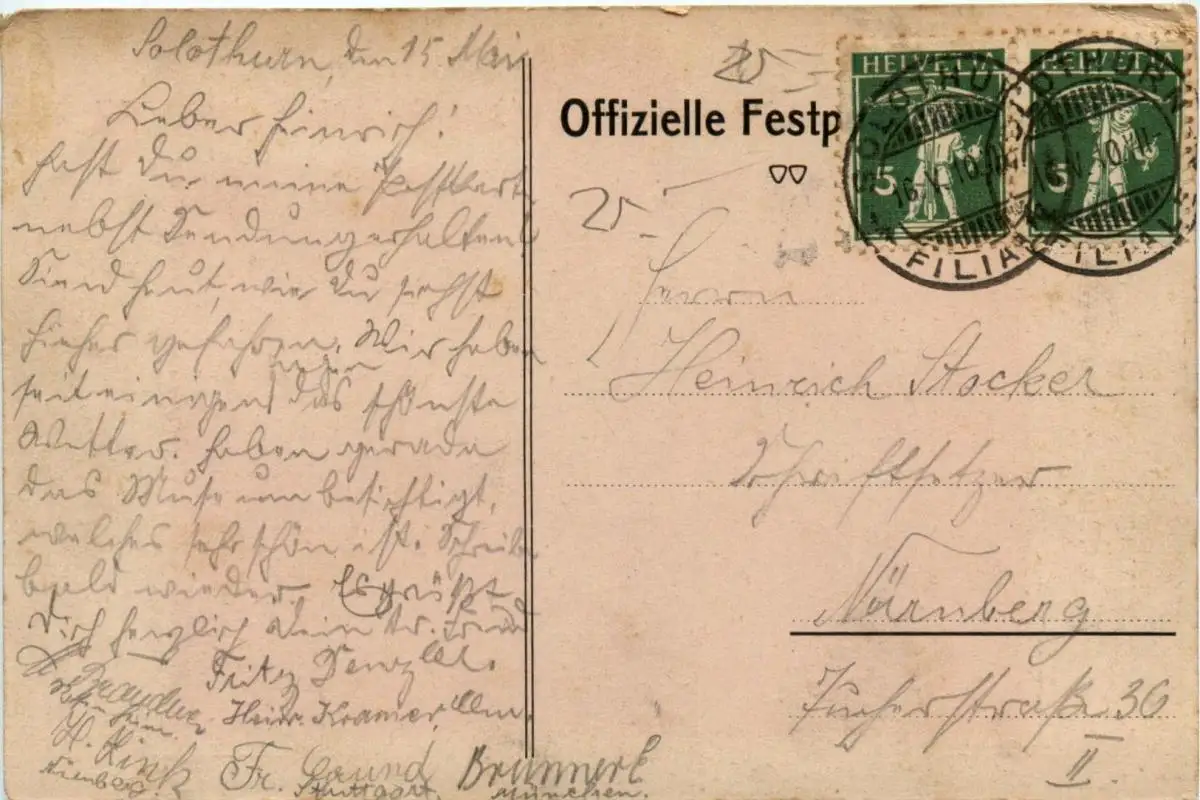 Solothurn, den 15 Mai
Lieber Heinrich!
Hast Du meine Postkarte
nebst Sendung erhalten?
Sind heut, wie Du siehst
hieher gefahren. Wir haben
seit einigen Tagen das schönste
Wetter. Haben gerade
das Museum besichtigt,
welches sehr schön ist. Schreibe
bald wieder. Es grüßt
Dich herzlich Dein tr. Freund
Fritz
Heinr. Kramer, Ulm.
H. Link
Nürnberg.
Fr.
Stuttgart.
Brunnerl
München.
Offizielle Festp
HELVETIA
5
HELVETIA
5
SOLOTHURN
FILIALE
SOLOTHURN
FILIALE
Herrn
Heinrich Stocker
Schriftsetzer
Nürnberg
36
II